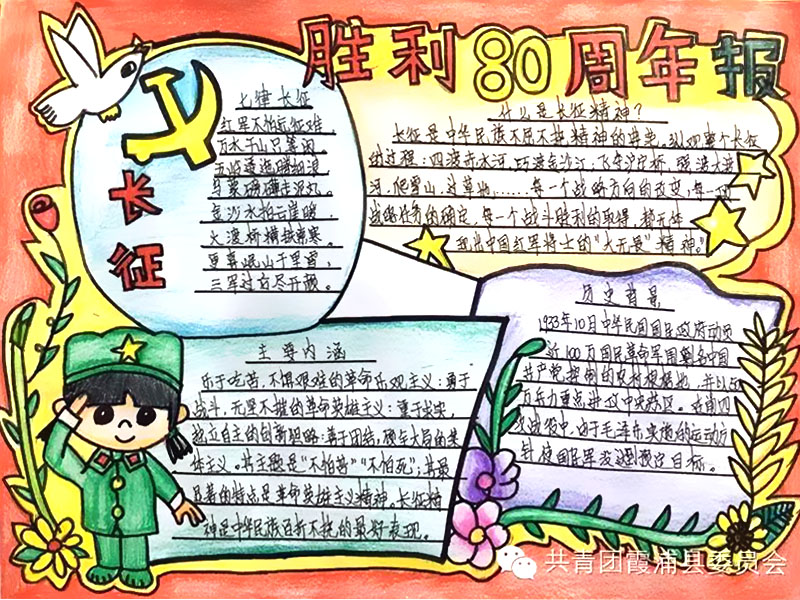 胜利80周年报
长征
七律长征
红军不怕远征难
万水千山只等闲。
五岭逶迤腾细浪
乌蒙磅礴走泥丸。
金沙水拍云崖暖
大渡桥横铁索寒。
更喜岷山千里雪，
三军过后尽开颜。
什么是长征精神？
长征是中华民族不屈不挠精神的
纵观整个长征
的过程：四渡赤水河，巧渡金沙江，飞夺泸定桥，强渡大渡
河，爬雪山，过草地，……每一个战略方向的改变，每一
战略任务的确定，每一个战斗胜利的取得，都无
现出中国红军将士的“大无畏”精神。”
主要内涵
乐于吃苦，不惧艰难的革命乐观主义：勇于
战斗，无坚不摧的革命英雄主义：重于求实，
独立自主的创新胆略：善于团结，顾全大局的集
体主义。其主题是“不怕苦”“不怕死”；其最
显著的特点是革命英雄主义精神。长征精
神是中华民族百折不挠的最好表现。
历史背景
1933年10月中华民国国民政府动员
近100万国民革命军围剿各中国
共产党控制的农村根据地，并以
万兵力重点进攻中央苏区。在前四
次战役中，由于毛泽东实施的运动方
针使国民军没遇预定目标。
共青团霞浦县委员会